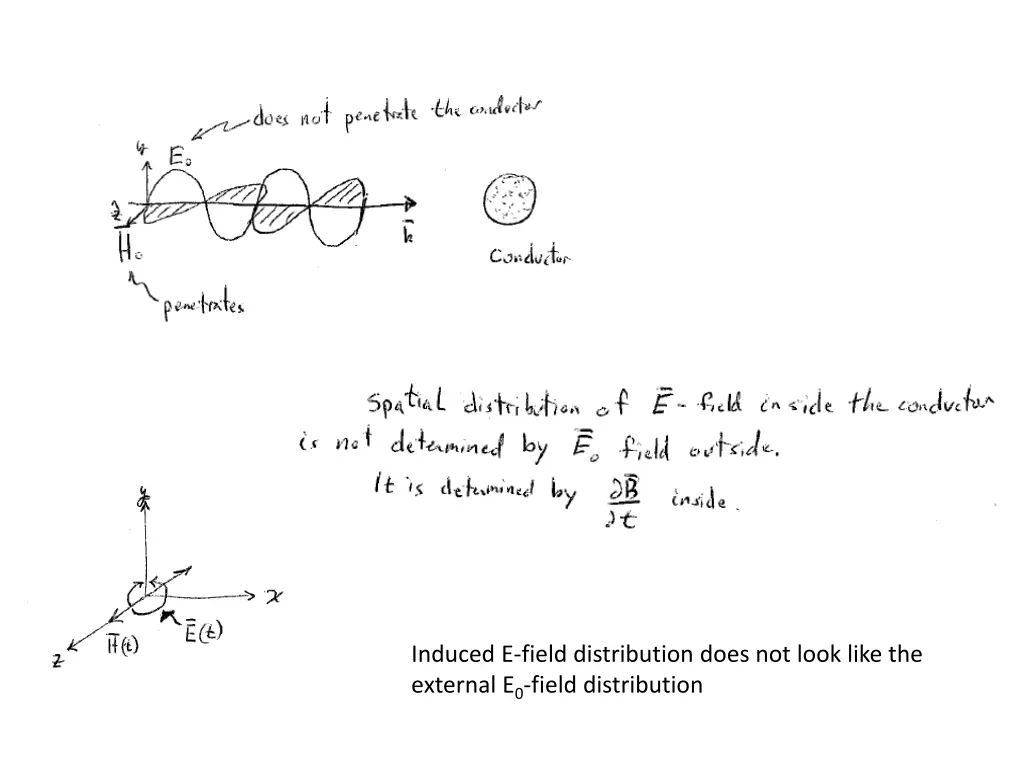 does not penetrate the conductor
y E₀
z
H̄₀
k̄
Conductor
penetrates
Spatial distribution of Ē-field inside the conductor
is not determined by Ē₀ field outside.
It is determined by ∂B̄/∂t inside.
y
x
Ē(t)
H̄(t)
z
Induced E-field distribution does not look like the
external E₀-field distribution